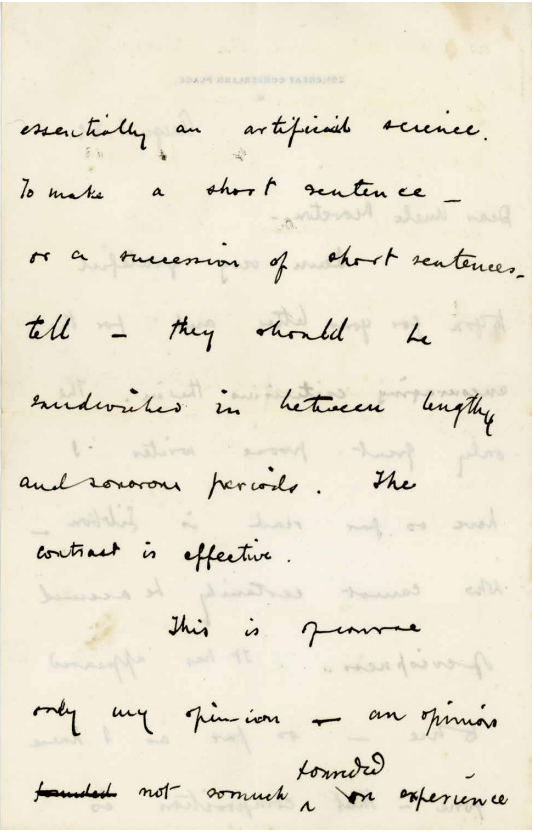 essentially an artificial science.
To make a short sentence –
or a succession of short sentences –
tell – they should be
sandwiched in between lengthy
and sonorous periods. The
contrast is effective.
This is of course
only my opinion – an opinion
founded not so much founded on experience